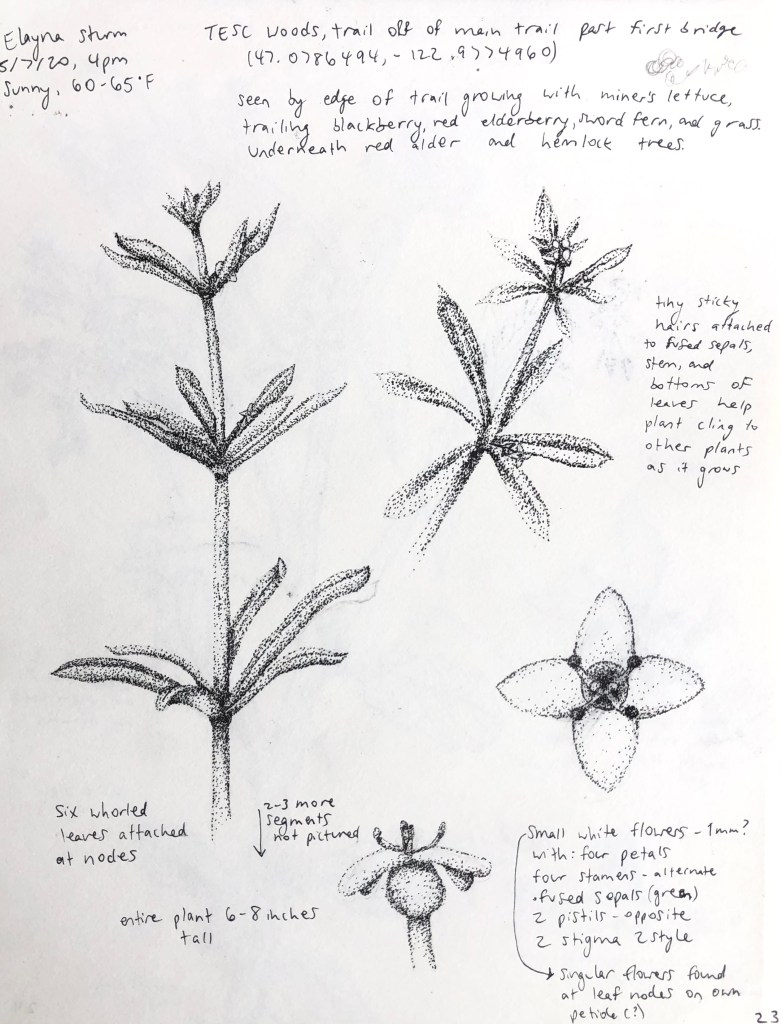 Elayna Sturm
5/7/20, 4pm
Sunny, 60-65°F
TESC woods, trail off of main trail past first bridge
(47.0786494, -122.9774960)
seen by edge of trail growing with miner's lettuce,
trailing blackberry, red elderberry, sword fern, and grass.
Underneath red alder and hemlock trees.
tiny sticky
hairs attached
to fused sepals,
stem, and
bottoms of
leaves help
plant cling to
other plants
as it grows
Six whorled
leaves attached
at nodes
2-3 more
segments
not pictured
entire plant 6-8 inches
tall
Small white flowers - 1mm?
with: four petals
four stamens - alternate
• fused sepals (green)
2 pistils - opposite
2 stigma 2 style
singular flowers found
at leaf nodes on own
petiole (?)
23